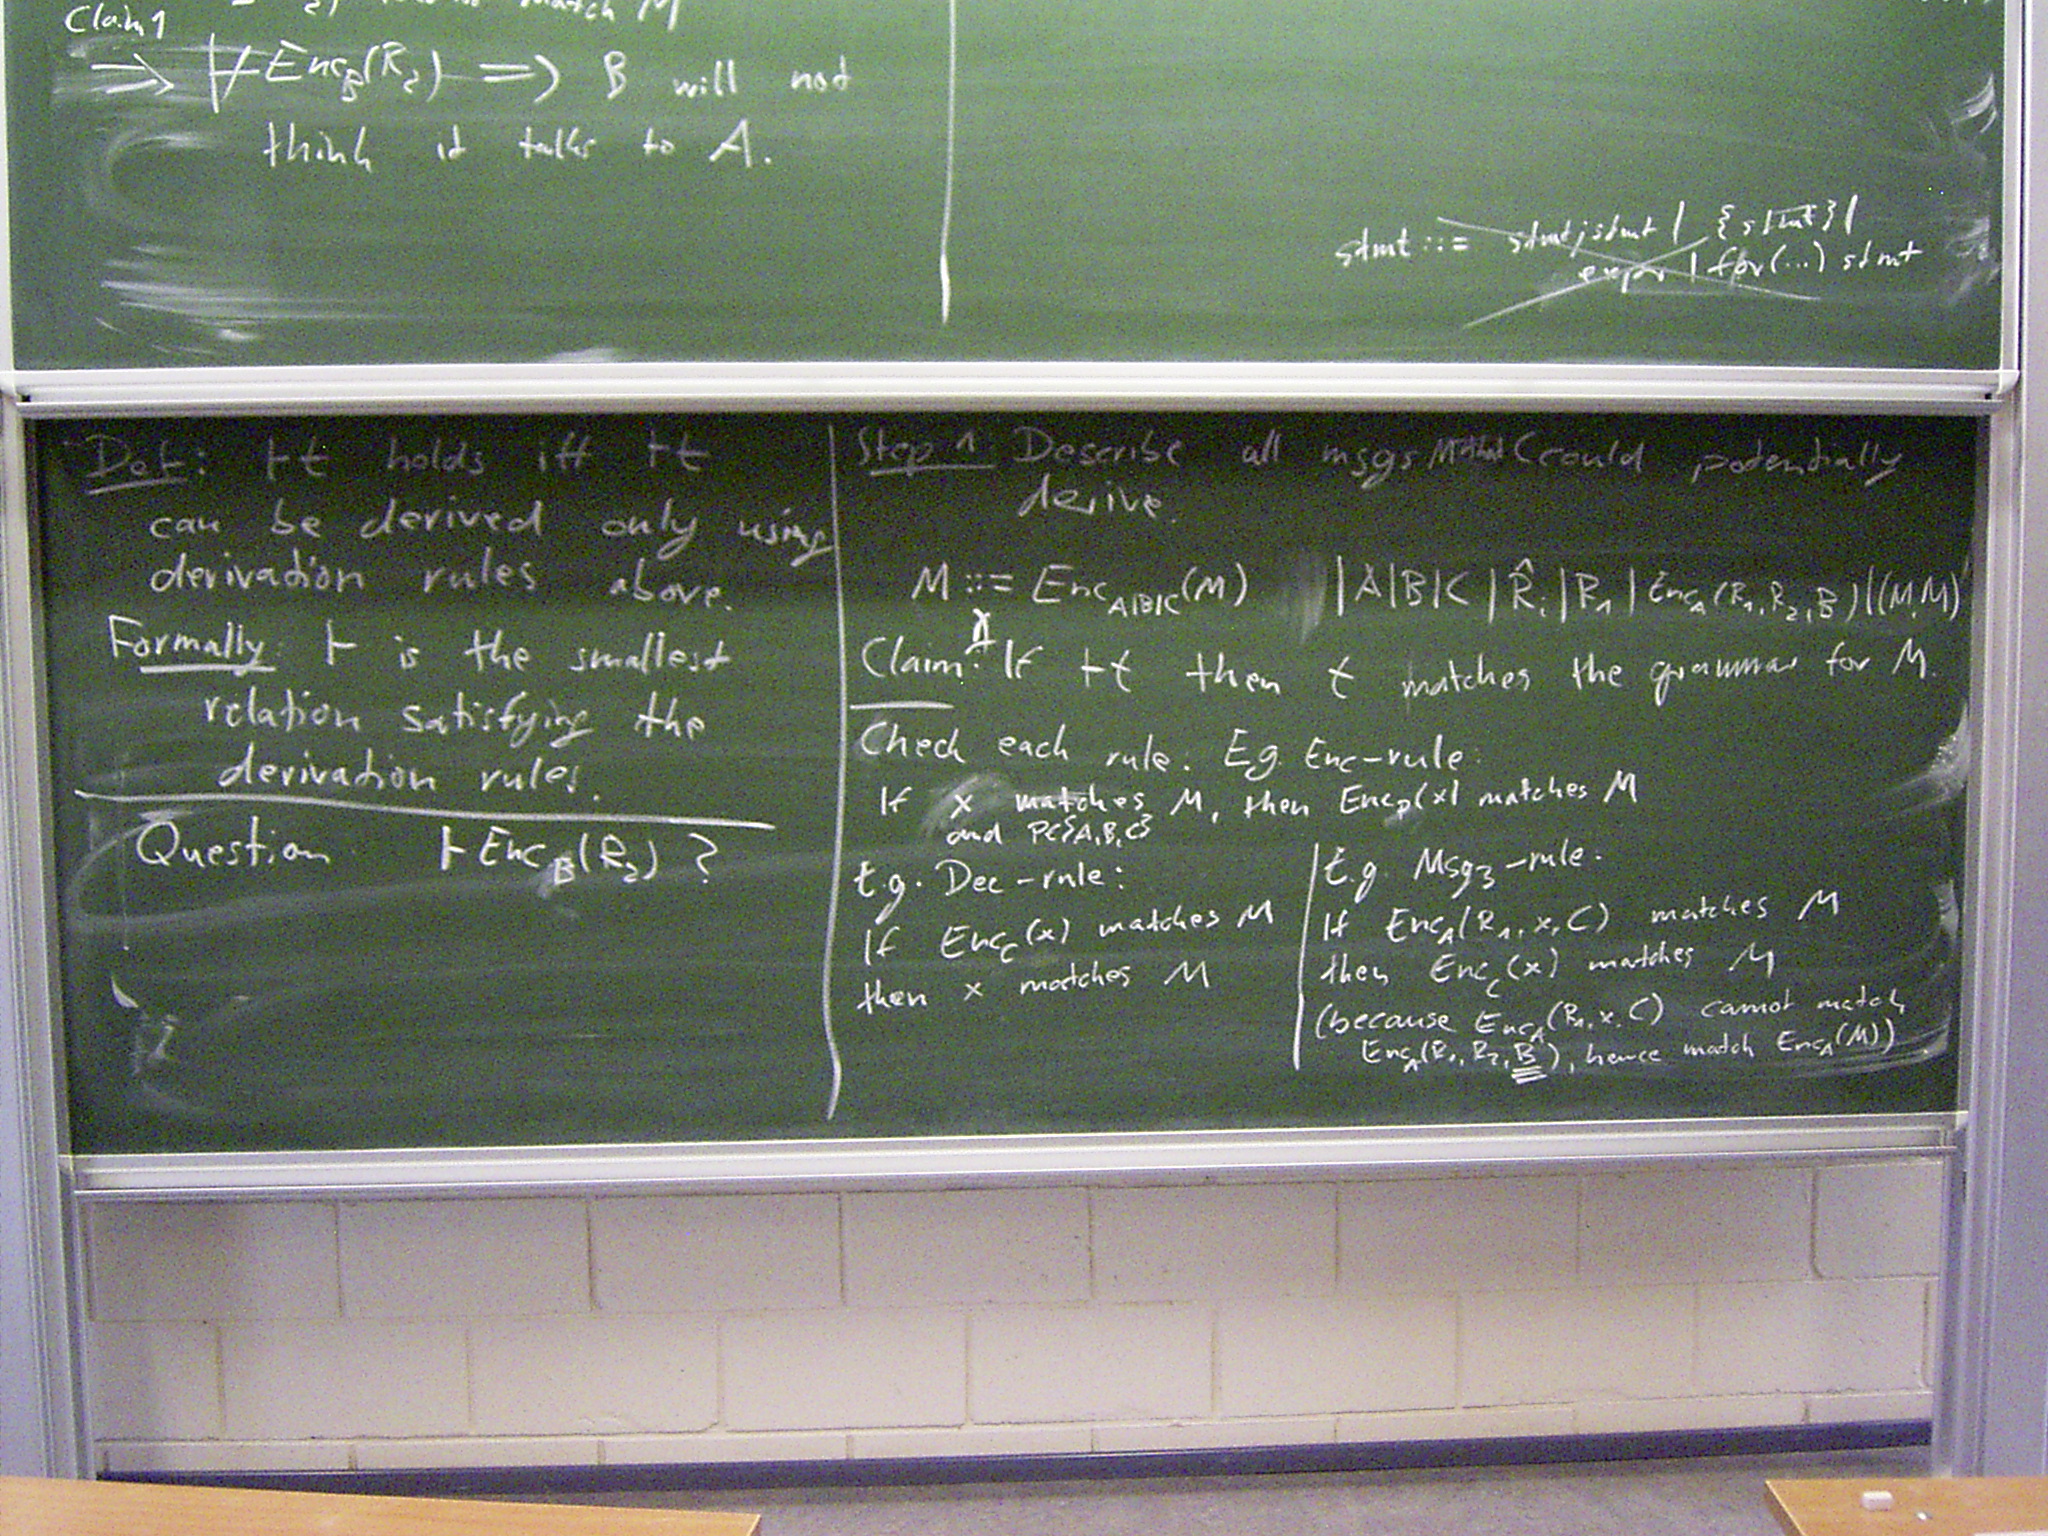 Claim 1
match M
=> ⊬ Enc_B(R_2) => B will not
think it talks to A.
stmt ::= stmt; stmt | {stmt} |
expr | for(...) stmt
Def: ⊢t holds iff ⊢t
can be derived only using
derivation rules above.
Formally: ⊢ is the smallest
relation satisfying the
derivation rules.
Question ⊢ Enc_B(R_2) ?
Step 1 Describe all msgs C could potentially
derive.
M ::= Enc_{A|B|C}(M) | A | B | C | R̂_i | R_1 | Enc_A(R_1, R_2, B) | (M, M)
Claim 1: If ⊢t then t matches the grammar for M.
Check each rule. Eg. Enc-rule:
If x matches M, then Enc_P(x) matches M
and P∈{A,B,C}
E.g. Dec-rule:
If Enc_C(x) matches M
then x matches M
E.g. Msg_3-rule:
If Enc_A(R_1, x, C) matches M
then Enc_C(x) matches M
(because Enc_A(R_1, x, C) cannot match
Enc_A(R_1, R_2, B), hence match Enc_A(M))